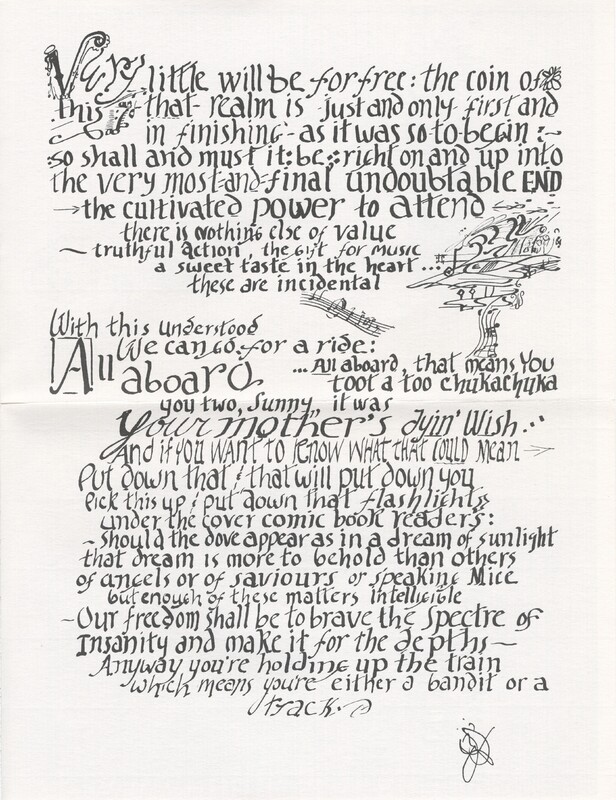 Very little will be for free: the coin of
this & that realm is just and only first and
in finishing - as it was so to begin :~
so shall and must it: be :: right on and up into
the very most-and-final undoubtable END
→ the cultivated power to attend ←
there is nothing else of value
~ truthful action, the gift for music
a sweet taste in the heart ...
these are incidental
With this understood
We can go for a ride:
All aboard ... All aboard, that means You
toot a too chukachuka
you two, Sunny, it was
your mother's dyin' Wish...
And if YOU WANT TO KNOW WHAT THAT COULD MEAN →
Put down that & that will put down you
Pick this up & put down that flashlight
under the cover comic book readers:
~ Should the dove appear as in a dream of sunlight
that dream is more to behold than others
of angels or of saviours or speaking Mice
but enough of these matters intelligible
~ Our freedom shall be to brave the spectre of
Insanity and make it for the depths ~
Anyway you're holding up the train
which means you're either a bandit or a
track.